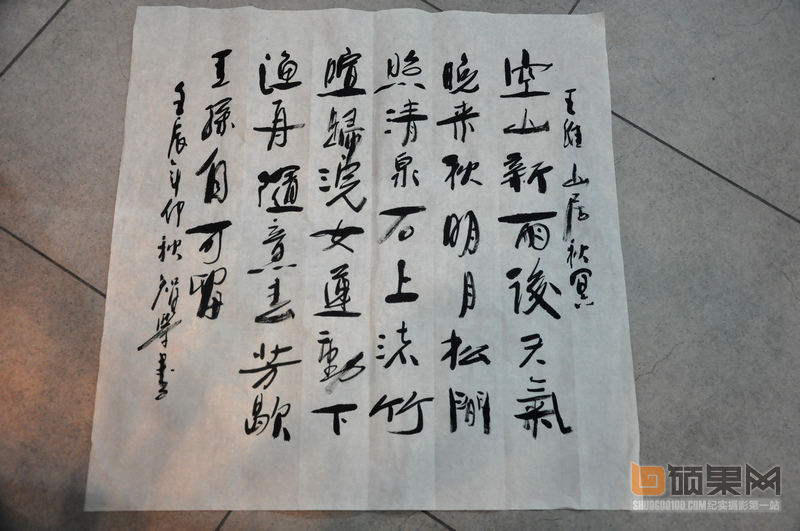 王維 山居秋冥
空山新雨後天氣
晚来秋明月松間
照清泉石上流竹
暄歸浣女蓮動下
渔舟隨意春芳歇
王孫自可留
壬辰年仲秋 智學書
硕果网
SHUOGUO100.COM纪实摄影第一站